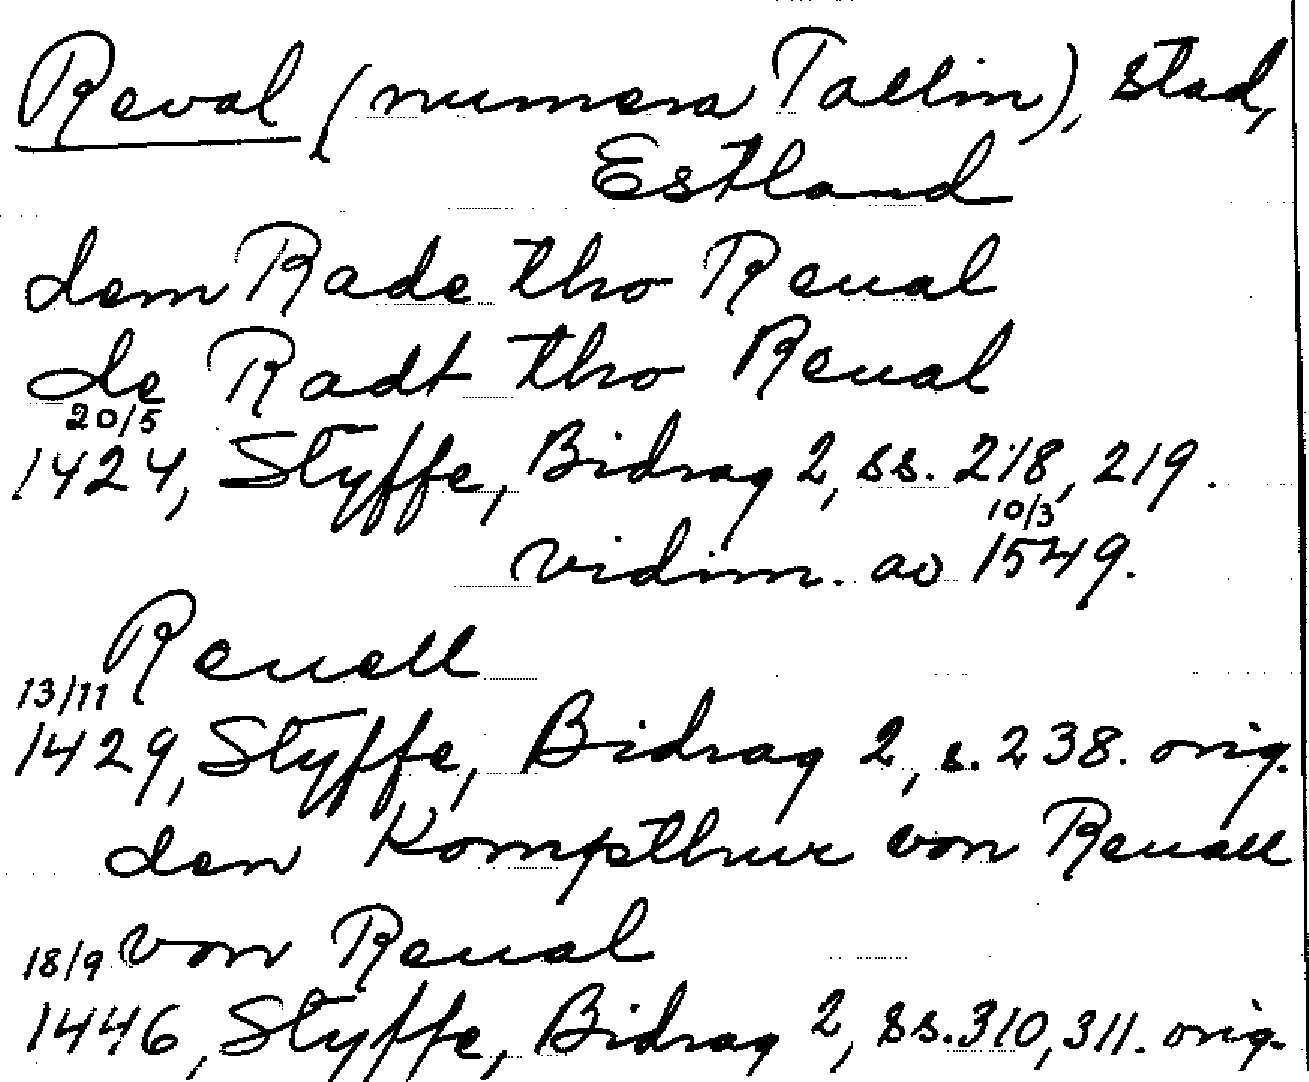 Reval (numera Tallin), stad,
Estland
dem Rade tho Reual
de Radt tho Reual
20/5
1424, Styffe, Bidrag 2, ss. 218, 219.
10/3
vidim. ao 1549.
Reuell
13/11
1429, Styffe, Bidrag 2, s. 238. orig.
den Kompthur von Reuall
18/9 von Reual
1446, Styffe, Bidrag 2, ss. 310, 311. orig.